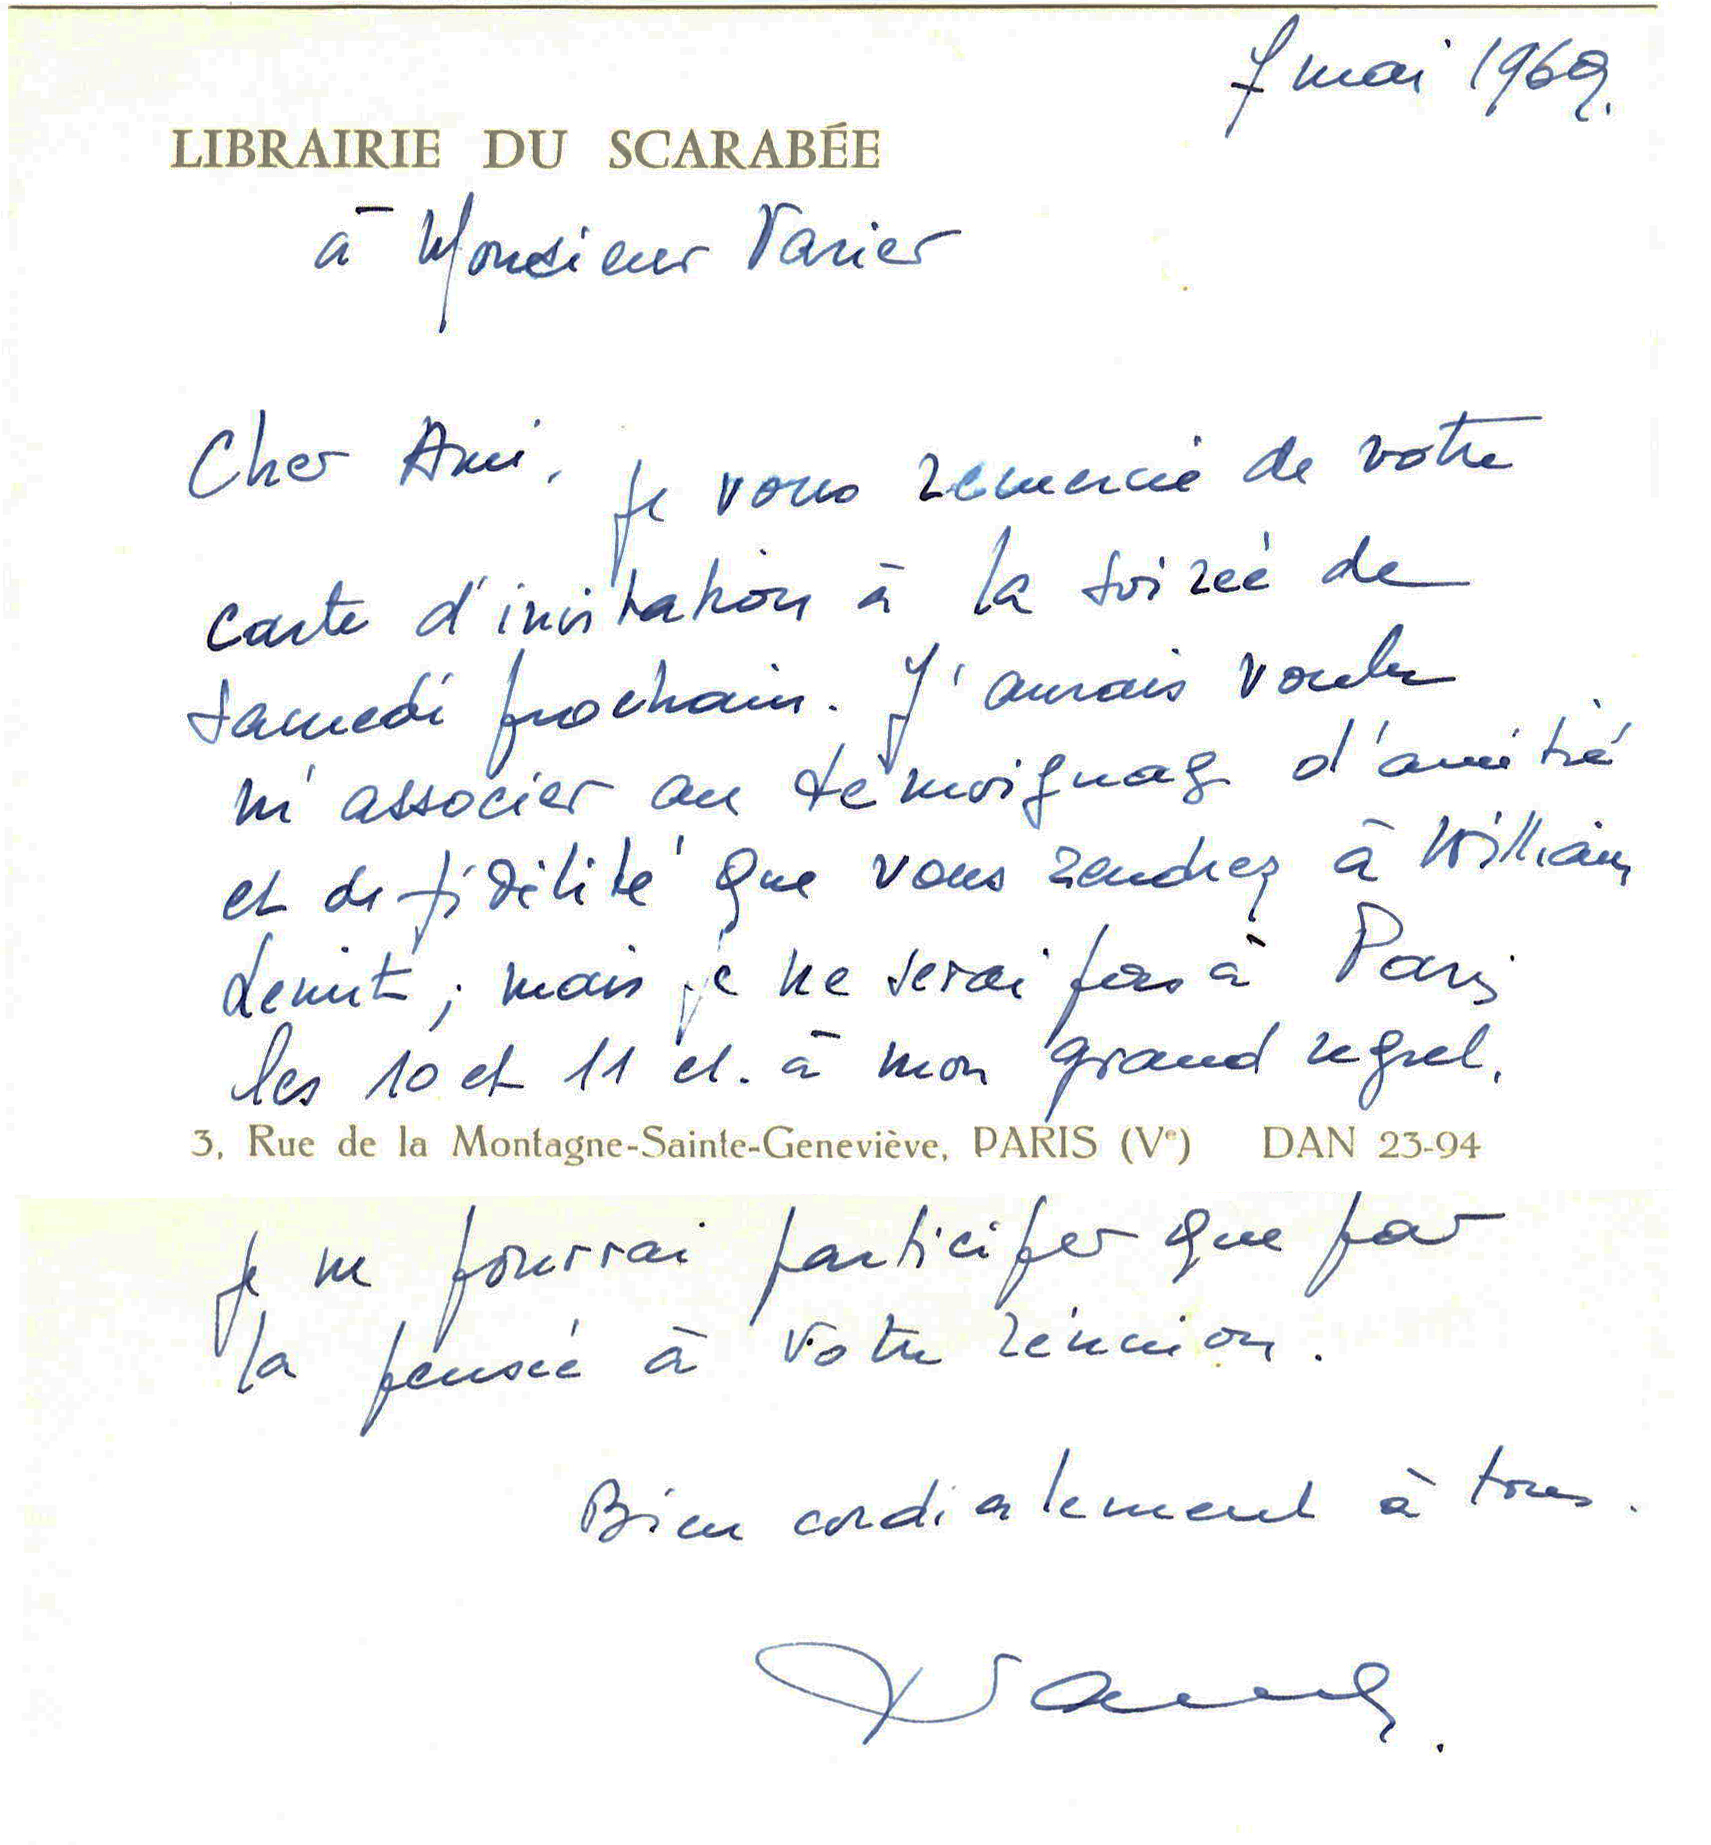 7 mai 1969.
LIBRAIRIE DU SCARABÉE
à Monsieur Varier
Cher Ami, je vous remercie de votre
carte d'invitation à la soirée de
samedi prochain. J'aurais voulu
m'associer au témoignage d'amitié
et de fidélité que vous rendrez à William
Lemit ; mais je ne serai pas à Paris
les 10 et 11 et. à mon grand regret,
3, Rue de la Montagne-Sainte-Geneviève, PARIS (Ve) DAN 23-94
je ne pourrai participer que par
la pensée à votre réunion.
Bien cordialement à tous.